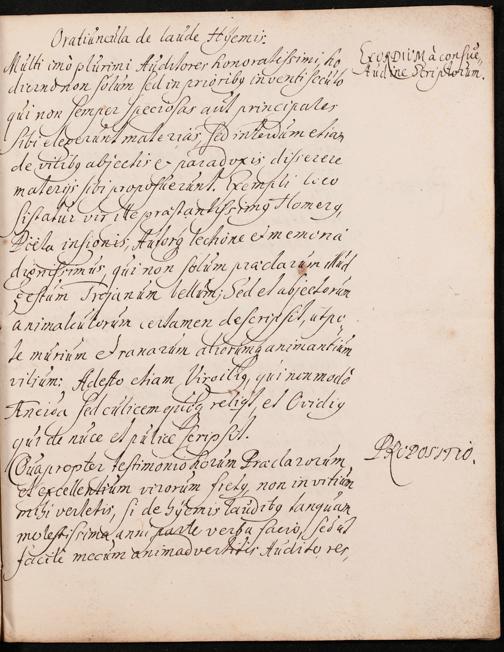 Oratiuncula de laude Hyemis.
EXORDIUM à consue,
tudine Scriptorum.
Multi imò plurimi Auditores honoratissimi, ho
dierno non solùm sed in prioribq inventi seculo
qui non semper speciosas aut principales
sibi elegerunt materias sed interdum etiam
de vilibq abjectis et paradoxis disserere
materijs sibi proposuerunt. Exempli loco
sistatur vir ille præstantissimq Homerq,
Poëta insignis, Autorq lectione et memoriâ
dignissimus, qui non solùm præclarum illud
gestum Trojanum bellum; sed et abjectorum
animalculorum certamen descripsit, utpo
te murium et ranarum aliorumq animantium
vilium: Adesto etiam Virgiliq, qui non modò
Æneida sed culicem quoq reliqt, et Ovidiq
qui de nuce et pulice scripsit.
PROPOSITIO.
Quapropter testimonio horum Præclarorum
et excellentium virorum fretq, non in vitium
mihi vertetis, si de hyemis laudibq tanquam
molestissima anni parte verba facio, sed ut
facilè mecum animadvertitis Auditores,